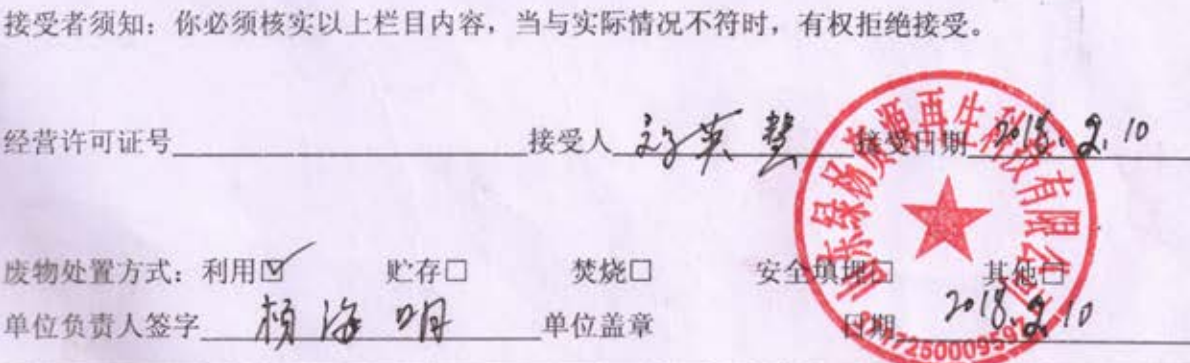 接受者须知：你必须核实以上栏目内容，当与实际情况不符时，有权拒绝接受。
经营许可证号 接受人 英慧 接受日期 2018.2.10
废物处置方式：利用☑ 贮存□ 焚烧□ 安全填埋□ 其他□
单位负责人签字 海明 单位盖章 日期 2018.2.10
山东绿杨资源再生科技有限公司